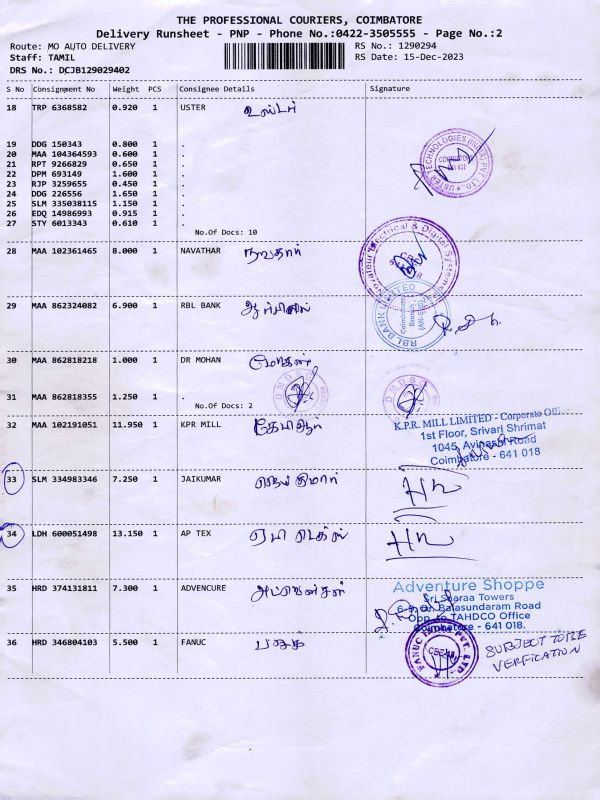 THE PROFESSIONAL COURIERS, COIMBATORE
Delivery Runsheet - PNP - Phone No.:0422-3505555 - Page No.:2
Route: MO AUTO DELIVERY RS No.: 1290294
Staff: TAMIL RS Date: 15-Dec-2023
DRS No.: DCJB129029402
S No Consignment No Weight PCS Consignee Details Signature
18 TRP 6368582 0.920 1 USTER உஸ்டர்
19 DDG 150343 0.800 1 .
20 MAA 104364593 0.600 1 .
21 RPT 9266829 0.650 1 .
22 DPM 693149 1.600 1 .
23 RJP 3259655 0.450 1 .
24 DDG 226556 1.650 1 .
25 SLM 335038115 1.150 1 .
26 EDQ 14986993 0.915 1 .
27 STY 6013343 0.610 1 .
No.Of Docs: 10
USTER TECHNOLOGIES (INDIA) PVT. LTD.
28 MAA 102361465 8.000 1 NAVATHAR நவதார்
Electrical & Digital Systems
29 MAA 862324082 6.900 1 RBL BANK
RBL BANK LIMITED
Coimbatore
Branch
30 MAA 862818218 1.000 1 DR MOHAN மோகன்
31 MAA 862818355 1.250 1 .
No.Of Docs: 2
DMDSC
DMDSC
32 MAA 102191051 11.950 1 KPR MILL கேபிஆர்
K.P.R. MILL LIMITED - Corporate Off
1st Floor, Srivari Shrimat
1045, Avinashi Road
Coimbatore - 641 018
33 SLM 334983346 7.250 1 JAIKUMAR ஜெய்குமார்
34 LDH 600051498 13.150 1 AP TEX ஏபி டெக்ஸ்
35 HRD 374131811 7.300 1 ADVENCURE
Adventure Shoppe
Sri Sharaa Towers
Balasundaram Road
Opp. to TAHDCO Office
Coimbatore - 641 018.
36 HRD 346804103 5.500 1 FANUC
FANUC INDIA PVT. LTD.
CBE
SUBJECT TO
VERFICATION